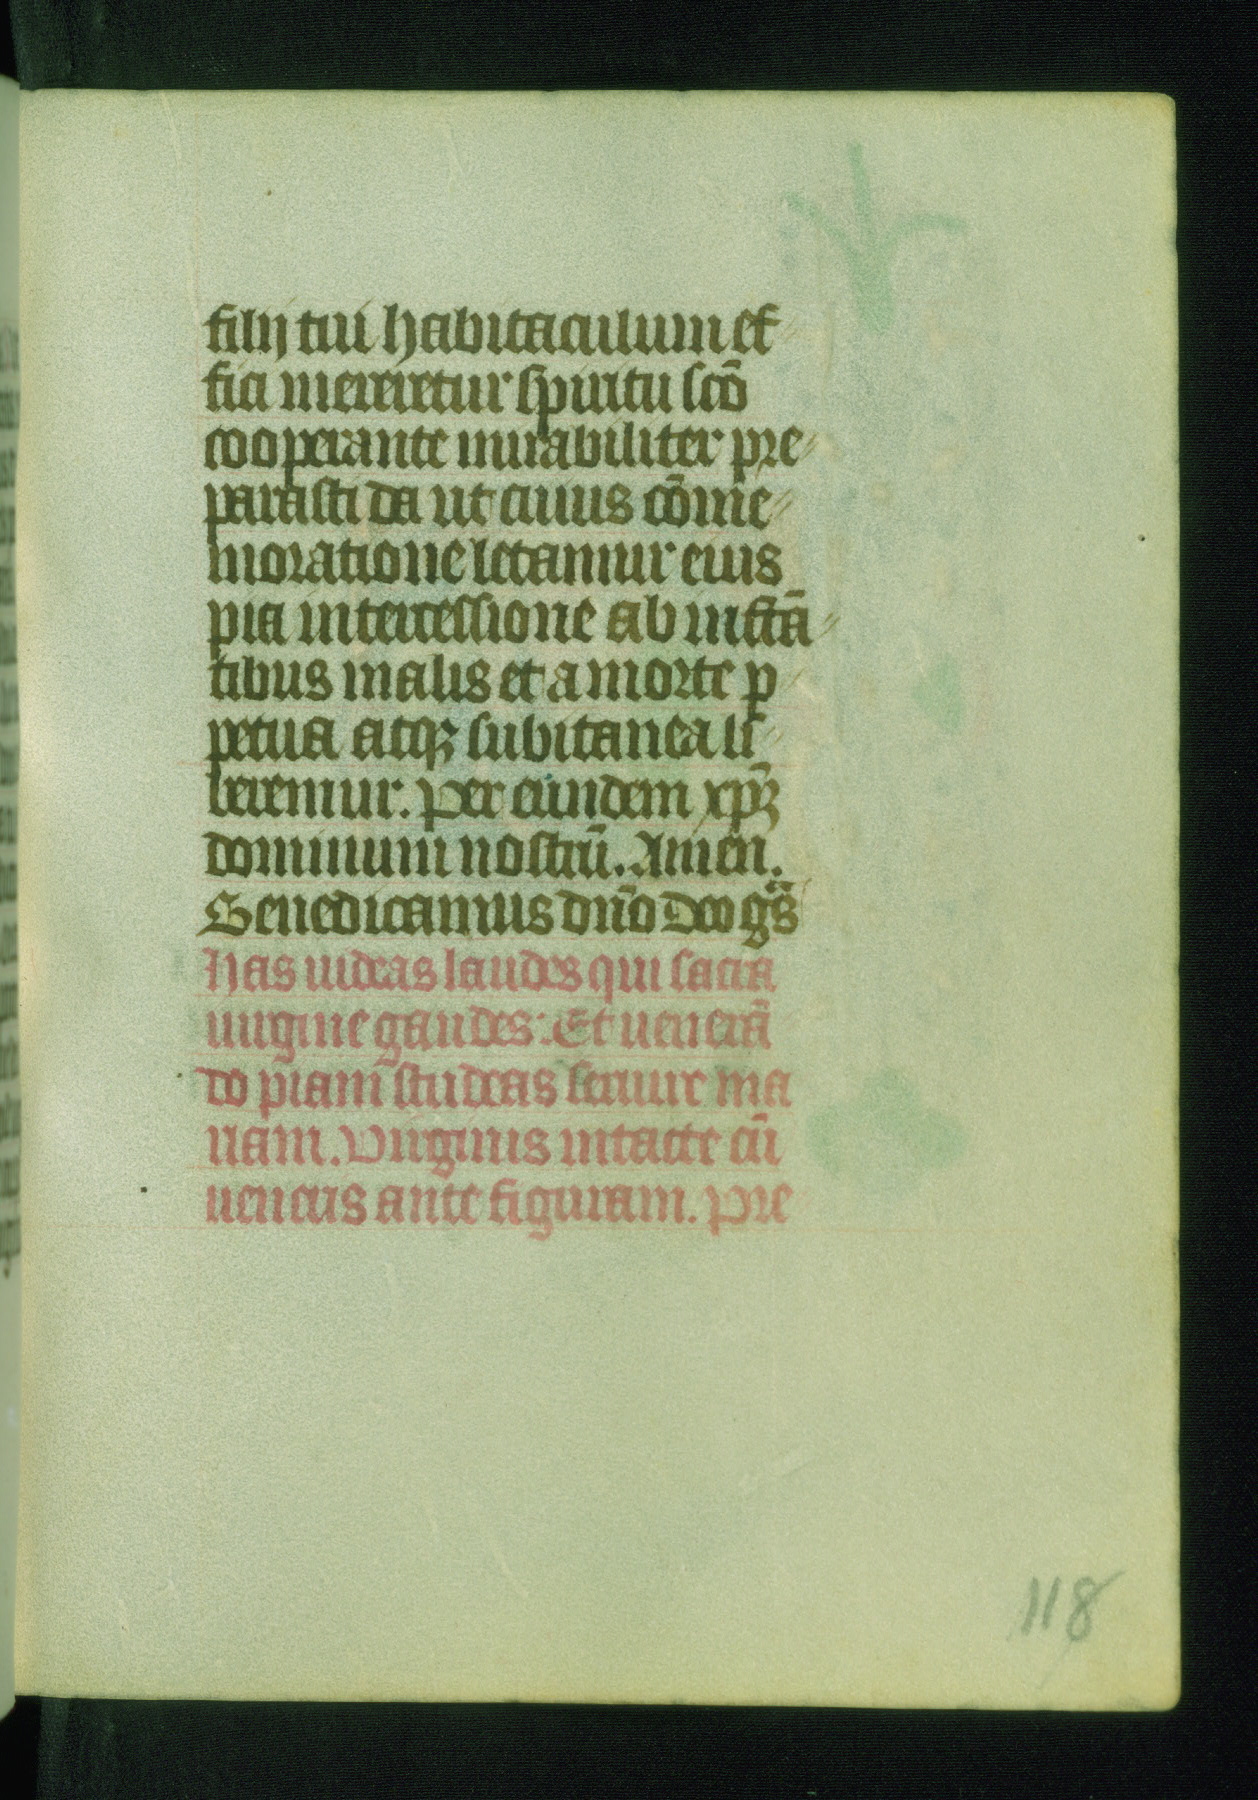 filij tui habitaculum ef
fici mereretur spiritu sc̄o
cooperante mirabiliter pre
parasti da ut cuius cōme
moratione letamur eius
pia intercessione ab instā
tibus malis et a morte p
petua atqʒ subitanea li
beremur. Per eundem xp̄ʒ
dominum nostrū. Amen.
Benedicamus dn̄o Deo gr̄as
Has uideas laudes qui sacra
uirgine gaudes: Et venerā
do piam studeas seruire ma
riam. Virginis intacte cū
ueneris ante figuram. Pre
118